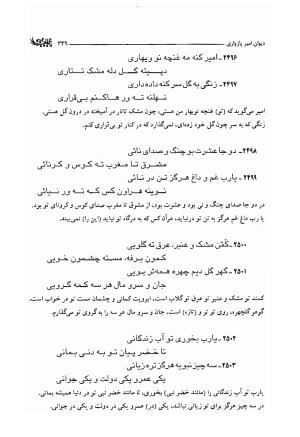 دیوان امیر پازواری ۳۳۹
۲۴۹۶- امیر گنه مه غنچه نو وبهاری
دپیته گسل دله مشک تتاری
۲۴۹۷- زنگی به گل سر کنه داده داری
نهلنه ته ور هاکنم بی‌قراری
امیر می‌گوید که (تو) غنچه نوبهار من هستی، چون مشک تاتار در هستی، که درون گل هستی.
زنگی که به سر چون گل خود زده‌ای، نمی‌گذارد که در کنار تو بی‌قراری کنم.
۲۴۹۸- دو جا عشرت بو چنگ و صدای نائی
مشرق تا مغرب ته کوس و کرنائی
۲۴۹۹- یارب غم و داغ هرگز تن در نائی
نوینه هراون کس که ته ور نیائی
در دو جا صدای چنگ و نی بود و عشرت بود، از مشرق تا مغرب صدای کوس و کرنای تو بود.
یا رب داغ غم هرگز به تن تو درنیاید، هرآن کس که به درگاه تو نیاید (این را) نمی‌بیند.
۲۵۰۰- کمن مشک و عنبر، عرق ته گلویی
کمون برفه، مسته چشمون خویی
۲۵۰۱- گهر گل دیم چهره همه‌تر بویی
جان و سر و مال هر سه کمه گرویی
کمند تو مشک و عنبر تو عرق تو گلاب است، ابرویت کمانی و چشمان مست تو در خواب است.
گوهر گلچهره، روی تو تر و (تازه) است، جان و سر و مال هر سه را گروی تو می‌گذارم.
۲۵۰۲- یارب بخوری تو آب زندگانی
تا خضر پیان تو به دنی بمانی
۲۵۰۳- سه چیز نبویه هرگز تره زیانی
یکی عمرو یکی دولت و یکی جوانی
یارب تو آب زندگانی را (مانند خضر نبی) بخوری، تا مانند خضر نبی تو در دنیا همیشه بمانی.
در سه چیز هرگز برای تو زیانی نباشد، یکی (در) عمر و یکی در دولت و یکی در جوانی.